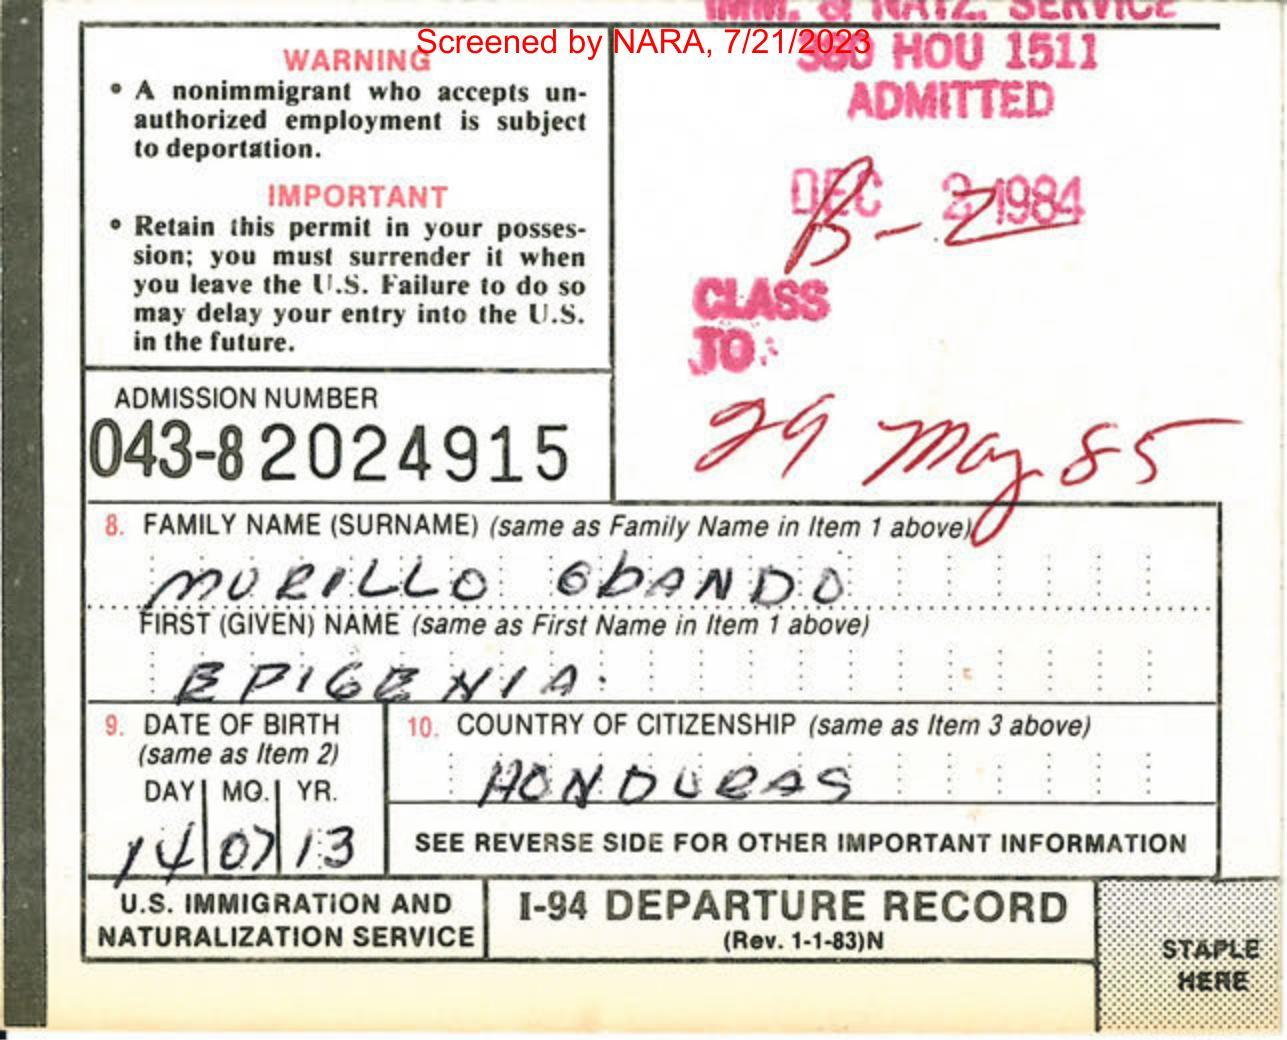 IMM. & NATZ. SERVICE
Screened by NARA, 7/21/2023
HOU 1511
ADMITTED
DEC 2 1984
B-2
CLASS
TO
29 May 85
WARNING
• A nonimmigrant who accepts un-
authorized employment is subject
to deportation.
IMPORTANT
• Retain this permit in your posses-
sion; you must surrender it when
you leave the U.S. Failure to do so
may delay your entry into the U.S.
in the future.
ADMISSION NUMBER
043-82024915
8. FAMILY NAME (SURNAME) (same as Family Name in Item 1 above)
MURILLO ObANDO
FIRST (GIVEN) NAME (same as First Name in Item 1 above)
EPIGENIA.
9. DATE OF BIRTH
(same as Item 2)
DAY MO. YR.
14 07 13
10. COUNTRY OF CITIZENSHIP (same as Item 3 above)
HONDURAS
SEE REVERSE SIDE FOR OTHER IMPORTANT INFORMATION
U.S. IMMIGRATION AND
NATURALIZATION SERVICE
I-94 DEPARTURE RECORD
(Rev. 1-1-83)N
STAPLE
HERE